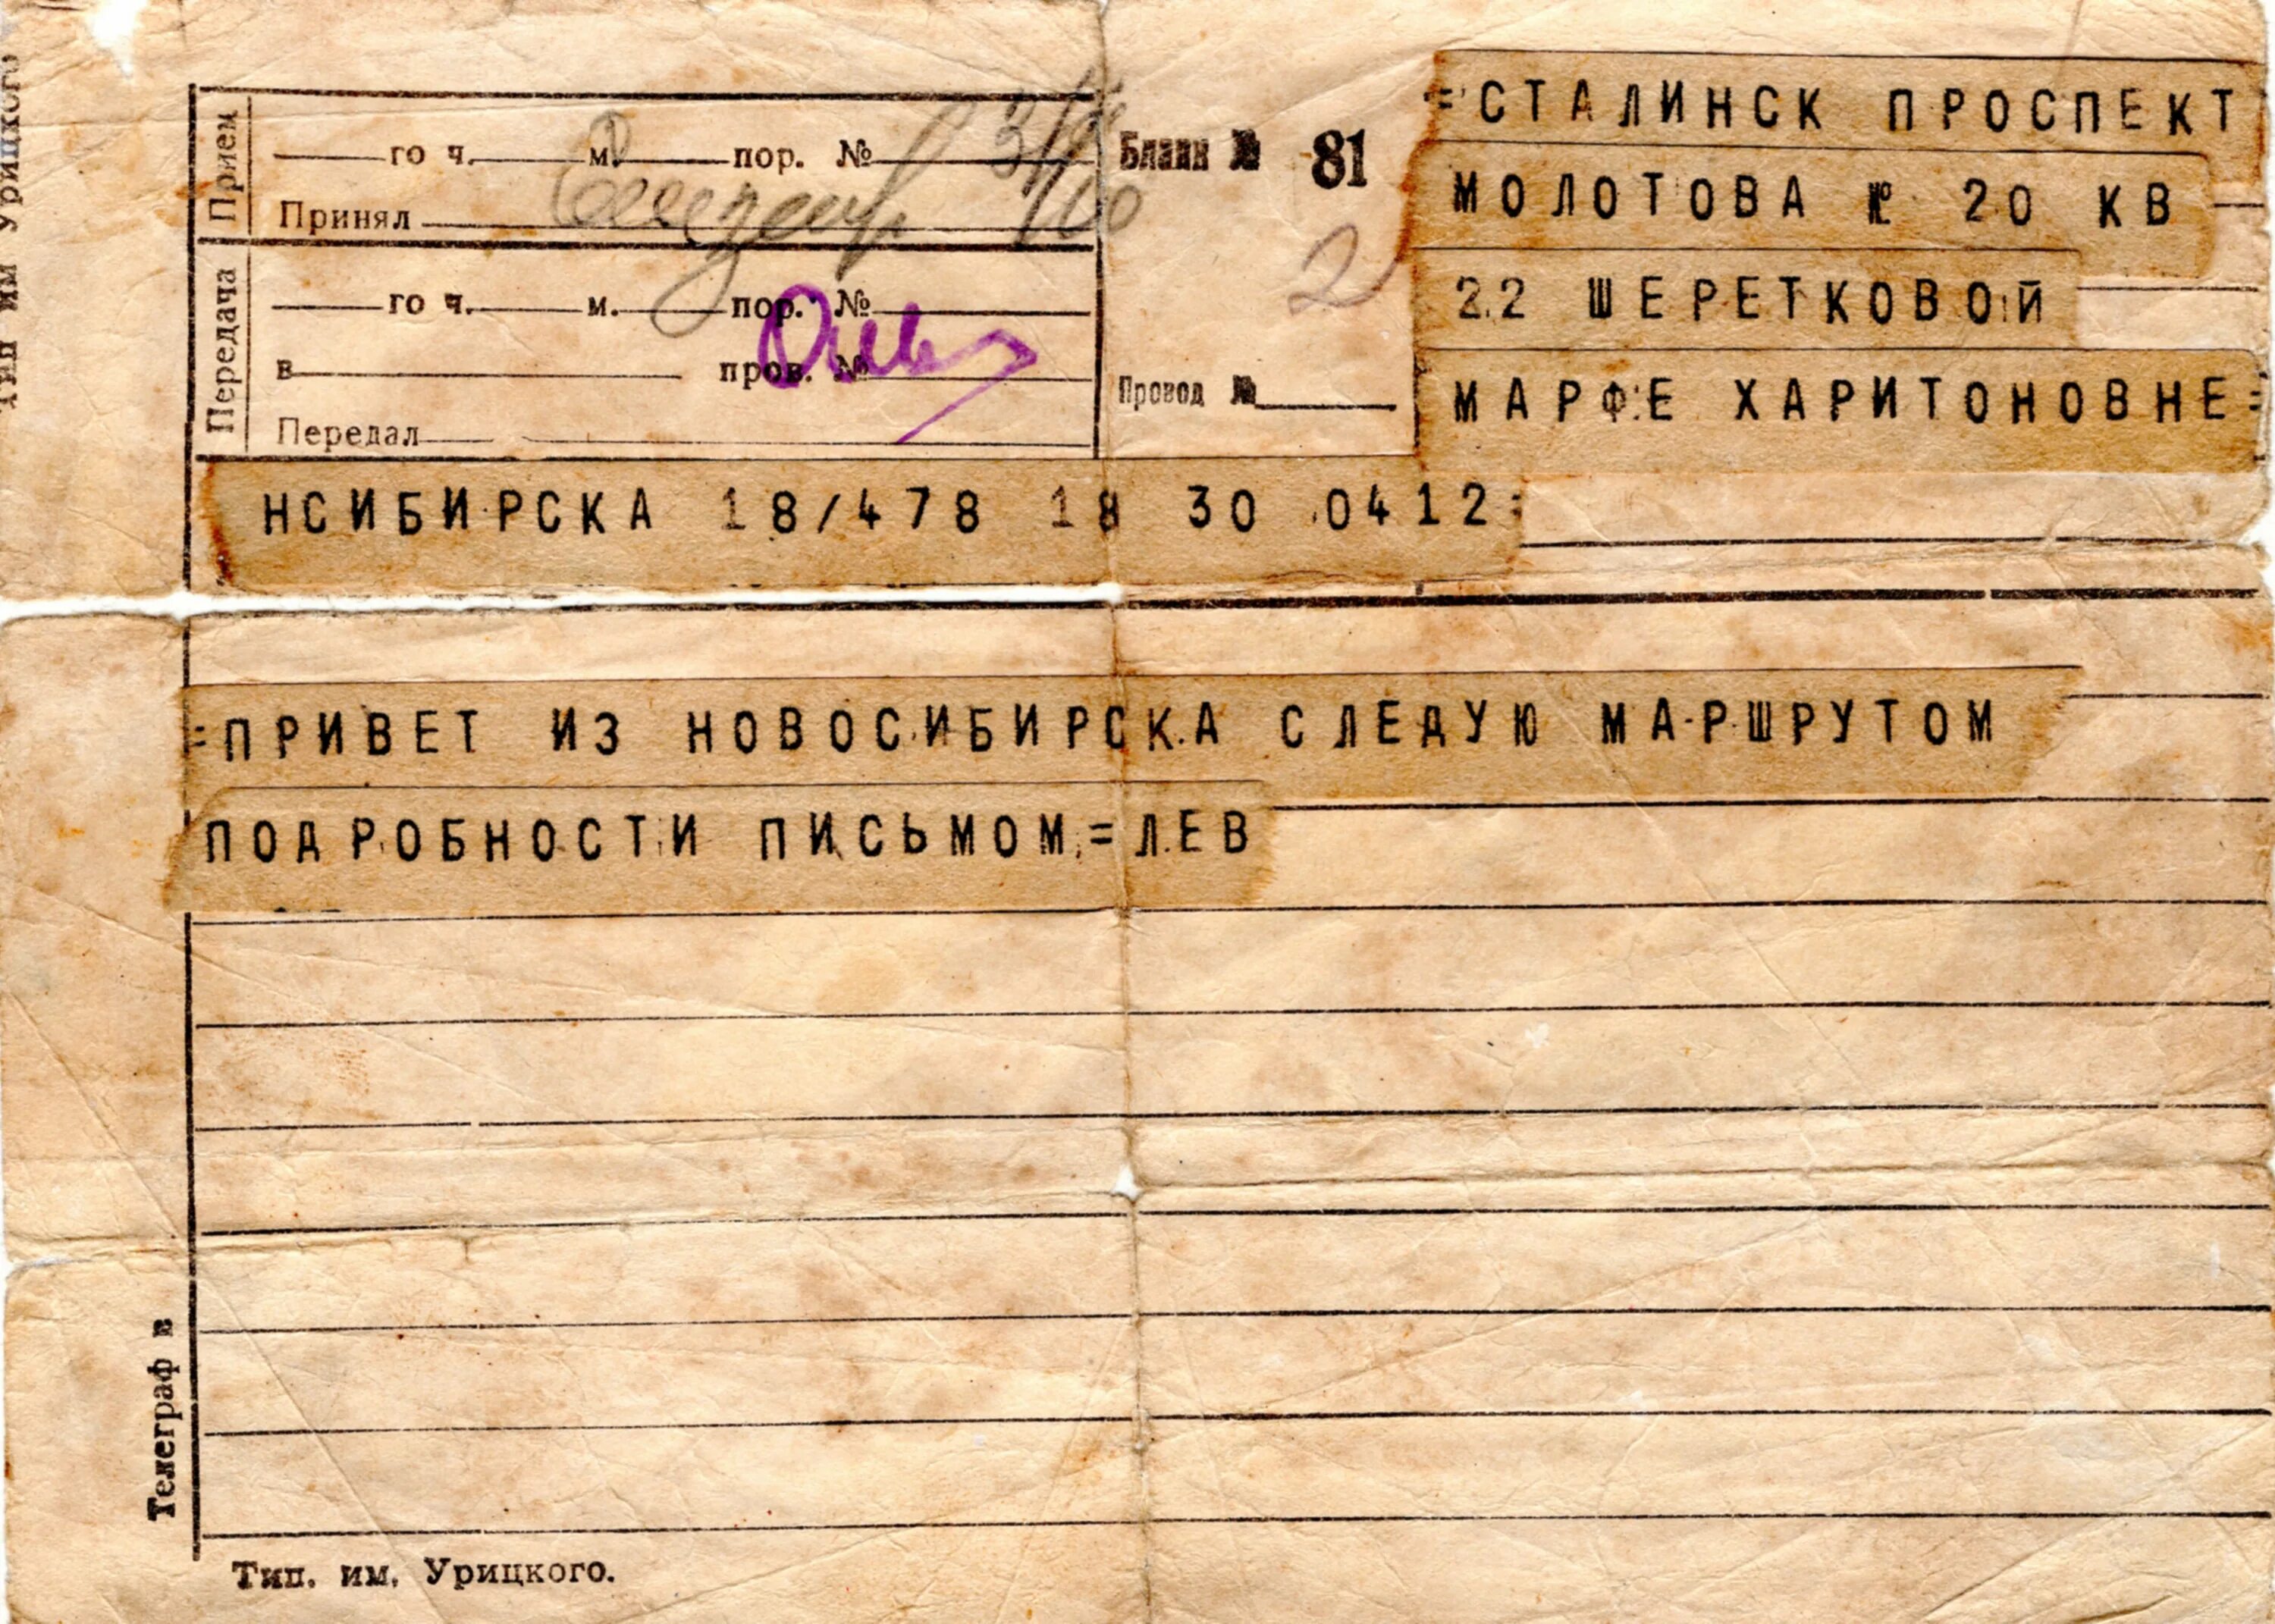 Тип им Урицкого
Прием
го ч. м. пор. №
Принял
Передача
го ч. м. пор. №
в пров. №
Передал
Бланк № 81
2
Провод №
=СТАЛИНСК ПРОСПЕКТ
МОЛОТОВА № 20 КВ
22 ШЕРЕТКОВОЙ
МАРФЕ ХАРИТОНОВНЕ=
НСИБИРСКА 18/478 18 30 0412=
=ПРИВЕТ ИЗ НОВОСИБИРСКА СЛЕДУЮ МАРШРУТОМ
ПОДРОБНОСТИ ПИСЬМОМ=ЛЕВ
Телеграф в
Тип. им. Урицкого.